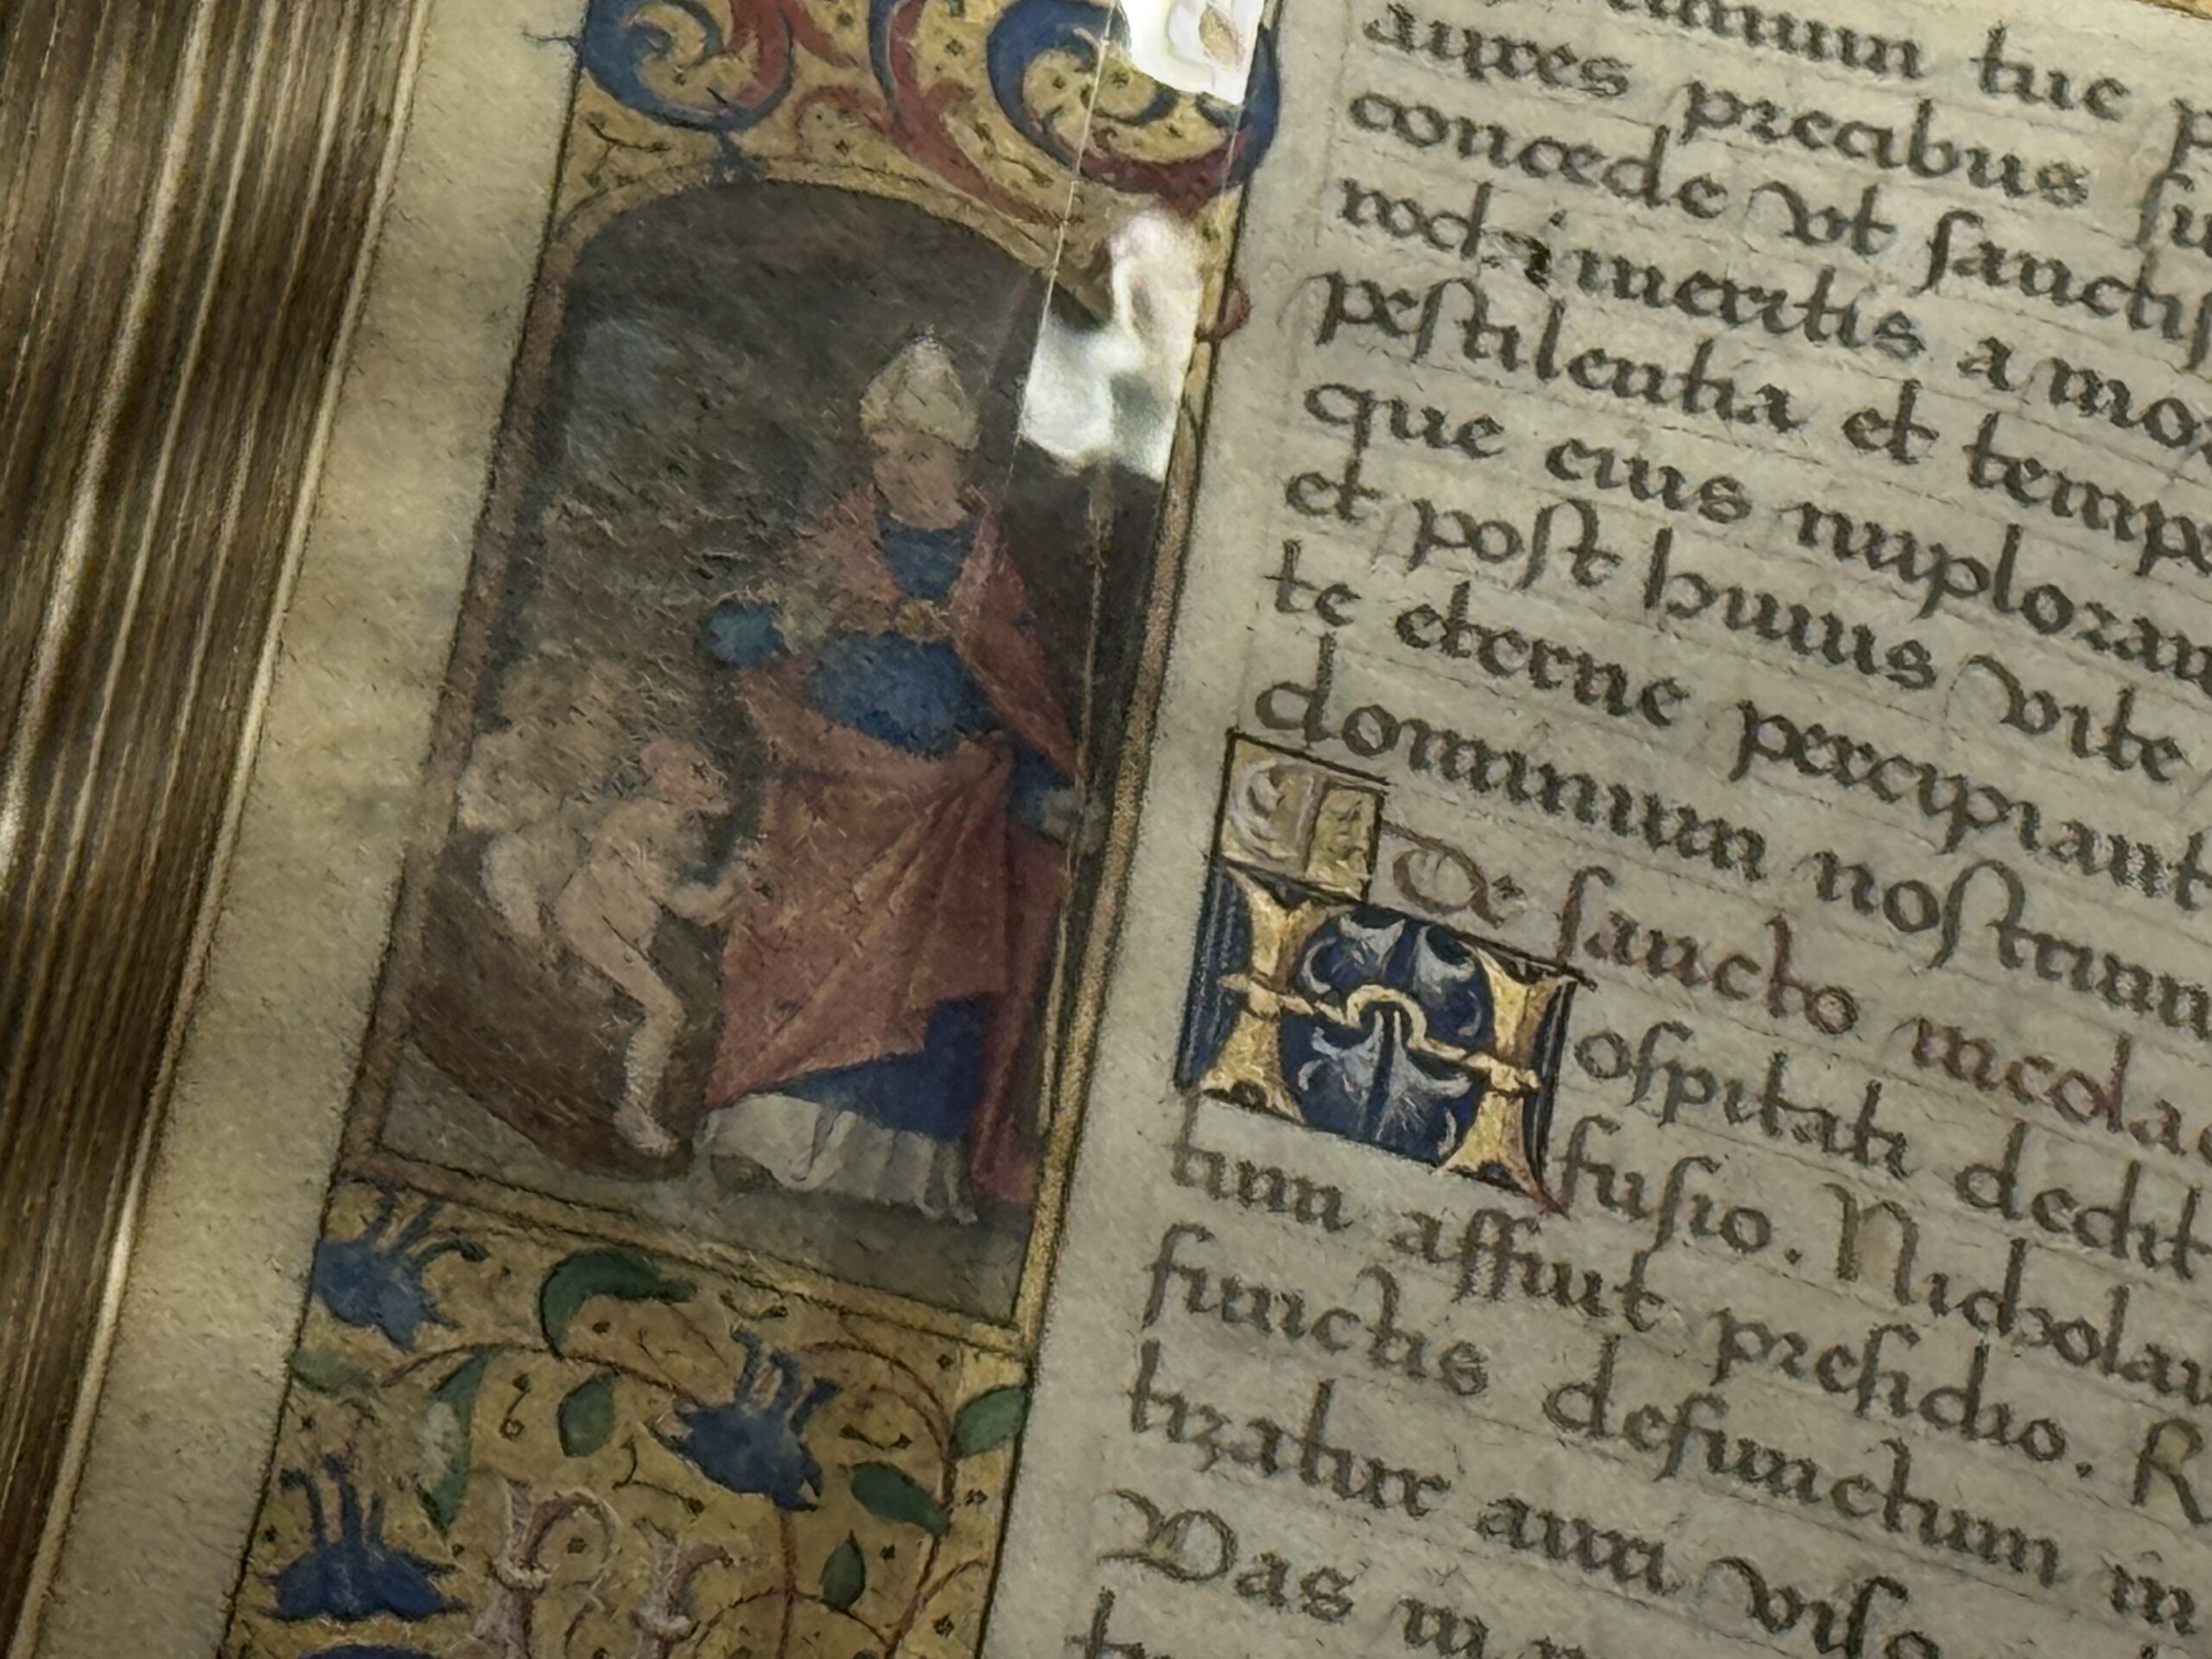 tue
aures precibus
concede vt sanctis
rochi meritis a mo
pestilentia et tempe
que eius implorant
et post huius vite
te eterne percipiant
dominum nostrum
De sancto nicolao
Hospitati dedit
fusio. Nicholau
tum affiut presidio. R
functis defunctum in
tizatur auri viso
Vas in